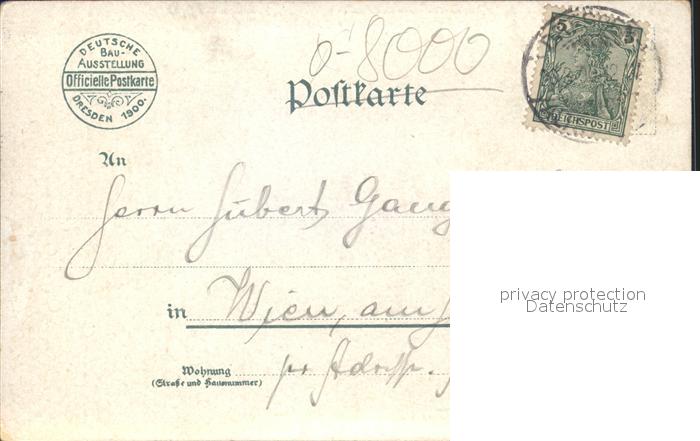 DEUTSCHE
BAU-
AUSSTELLUNG
Officielle Postkarte
DRESDEN 1900.
0-8000
Postkarte
5 5
REICHSPOST
An
Herrn Hubert
in Wien, am
Wohnung
(Straße und Hausnummer)
pr. Adresse.
privacy protection
Datenschutz